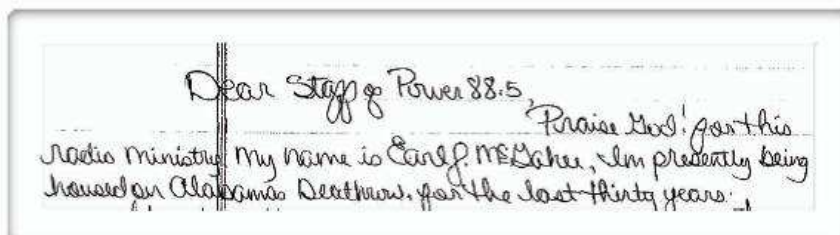 Dear Staff of Power 88.5,
Praise God! for this
radio ministry My name is Earl J. McGahee, Im presently being
housed on Alabamas Deathrow. for the last thirty years.